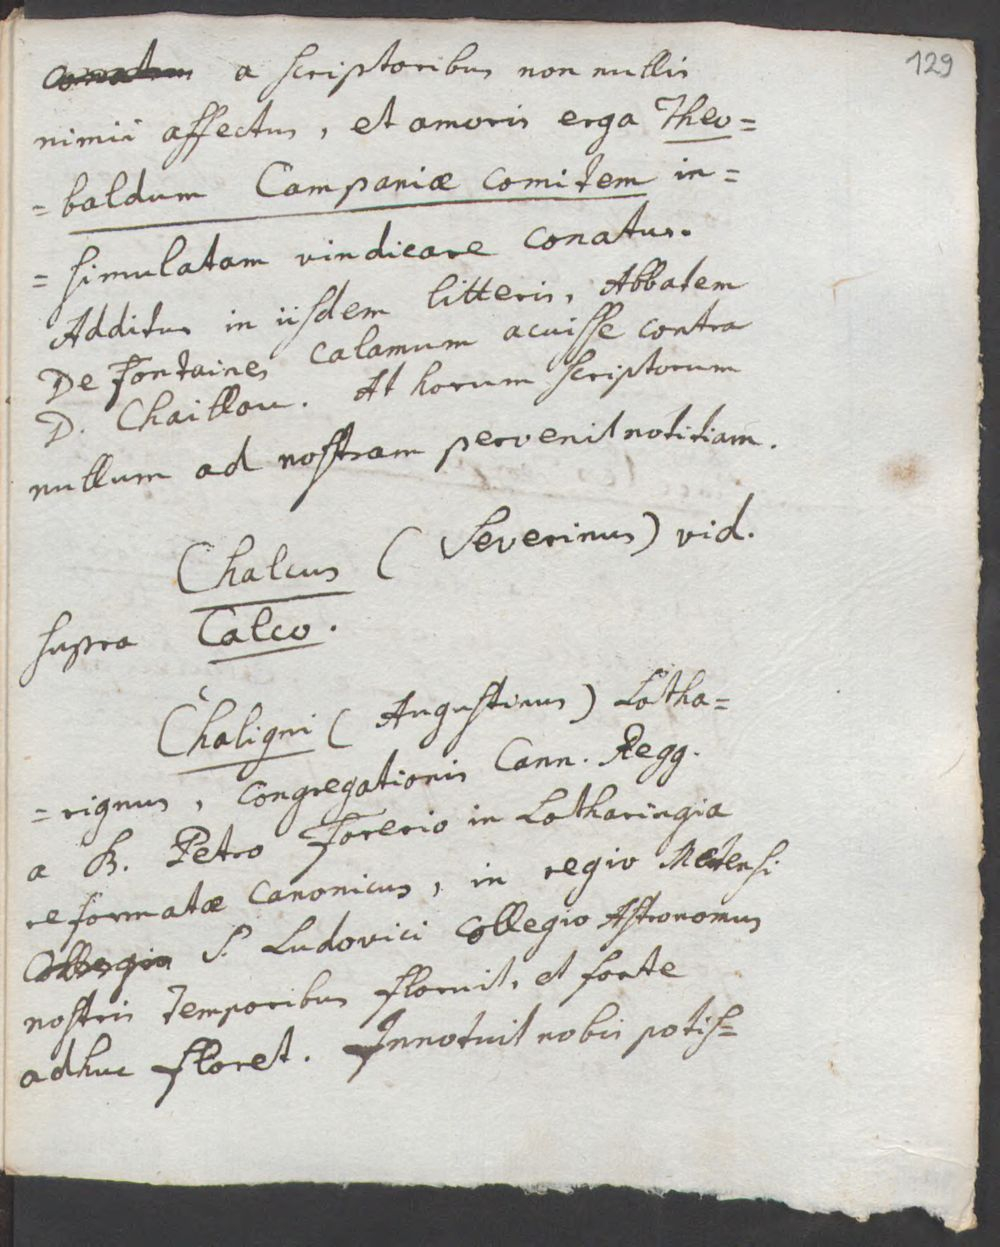 129
a scriptoribus non nullis
nimii affectus, et amoris erga Theo=
=baldum Campaniæ comitem in=
=simulatam vindicare conatus.
Additur in iisdem litteris, Abbatem
De Fontaines calamum acuisse contra
D. Chaillou. At horum scriptorum
nullum ad nostram pervenit notitiam.
Chalcus (Severinus) vid.
supra Calco.
Chaligni (Augustinus) Lotha=
=rignus, congregationis Cann. Regg.
a B. Petro Forerio in Lotharingia
reformatæ canonicus, in regio Metensi
Collegio S. Ludovici collegio Astronomus
nostris temporibus floruit, et forte
adhuc floret. Innotuit nobis potis=